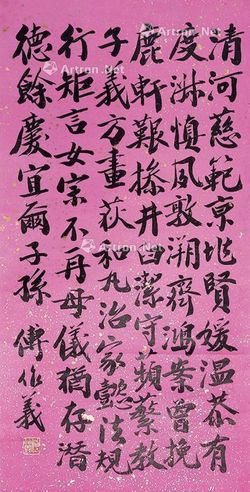 清河慈範京兆賢媛溫恭有
度淋慎夙敦溯齊鴻案曾挽
鹿軒艱操井臼潔守蘋蘩教
子義方畫荻和丸治家懿法規
行矩言女宗不再母儀猶存潛
德餘慶宜爾子孫 傅作義
Artron.Net